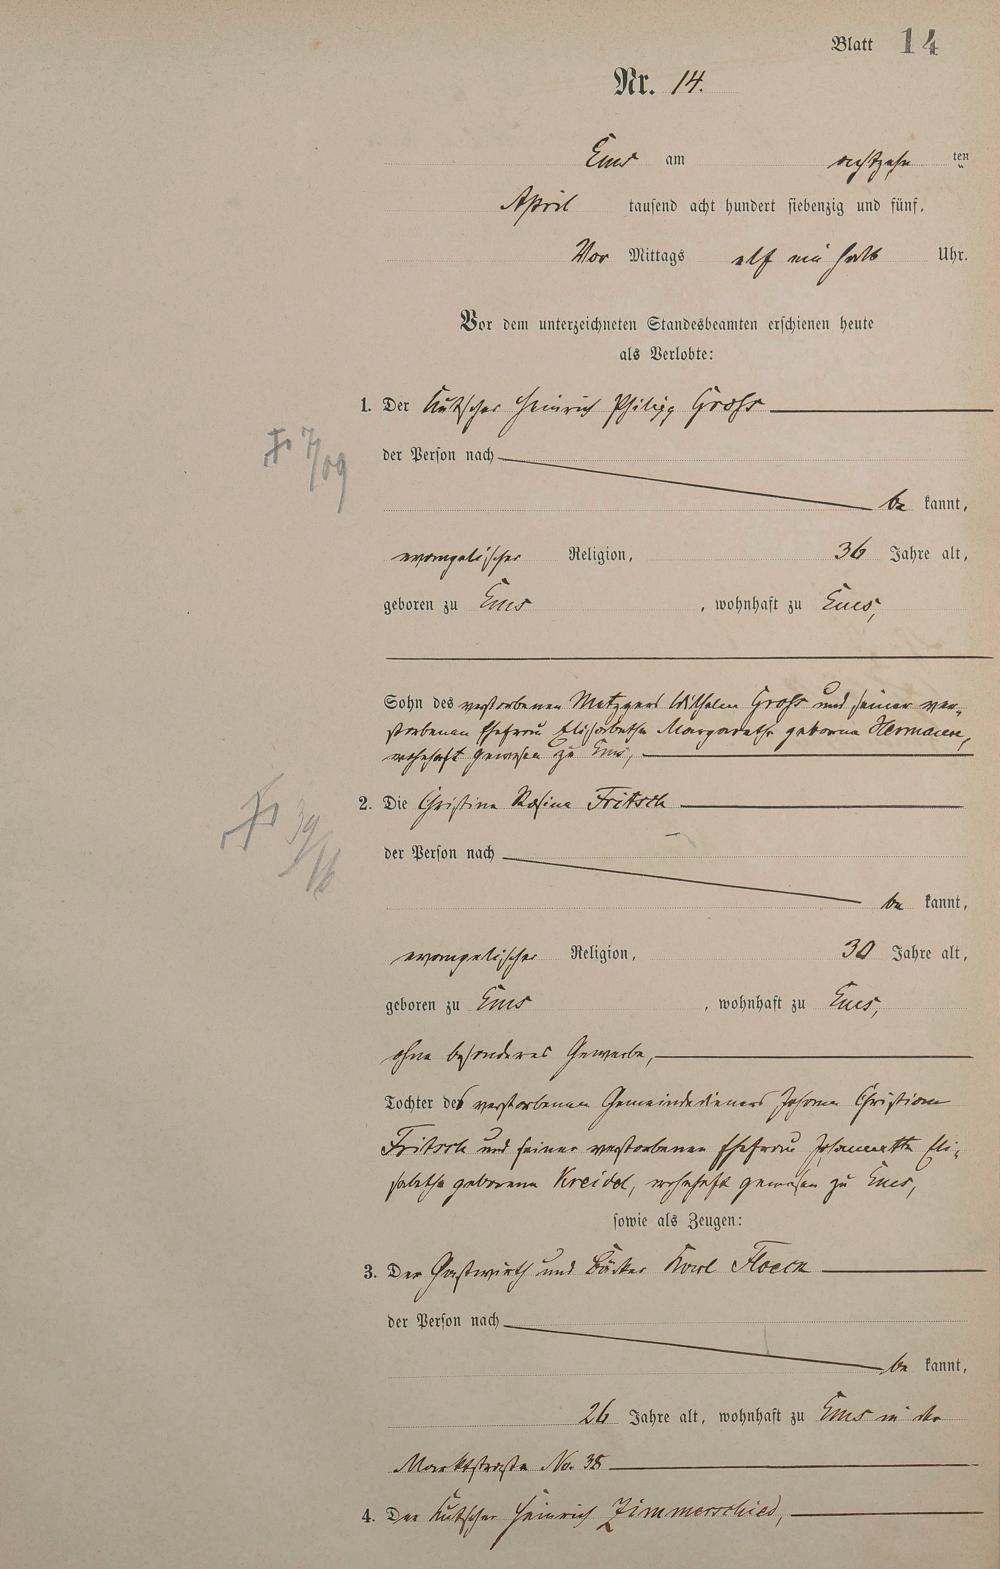 Blatt 14
Nr. 14.
Ems am achtzehn ten
April tausend acht hundert siebenzig und fünf,
Vor Mittags elf ein halb Uhr.
Vor dem unterzeichneten Standesbeamten erschienen heute
als Verlobte:
1. Der Kutscher Heinrich Philipp Groß
der Person nach
be kannt,
evangelischer Religion, 36 Jahre alt,
geboren zu Ems, wohnhaft zu Ems,
Sohn des verstorbenen Metzgers Wilhelm Groß und seiner ver-
storbenen Ehefrau Elisabetha Margaretha geborne Hermann,
wohnhaft gewesen zu Ems,
2. Die Christine Rosine Fritsch
der Person nach
be kannt,
evangelischer Religion, 30 Jahre alt,
geboren zu Ems, wohnhaft zu Ems,
ohne besonderes Gewerbe,
Tochter des verstorbenen Gemeindedieners Johann Christian
Fritsch und seiner verstorbenen Ehefrau Johannette Eli-
sabetha geborene Kreidel, wohnhaft gewesen zu Ems,
sowie als Zeugen:
3. Der Gastwirth und Bäcker Karl Floeck
der Person nach
be kannt,
26 Jahre alt, wohnhaft zu Ems in der
Marktstraße No. 38
4. Der Kutscher Heinrich Zimmerschied,
7/09
39/16